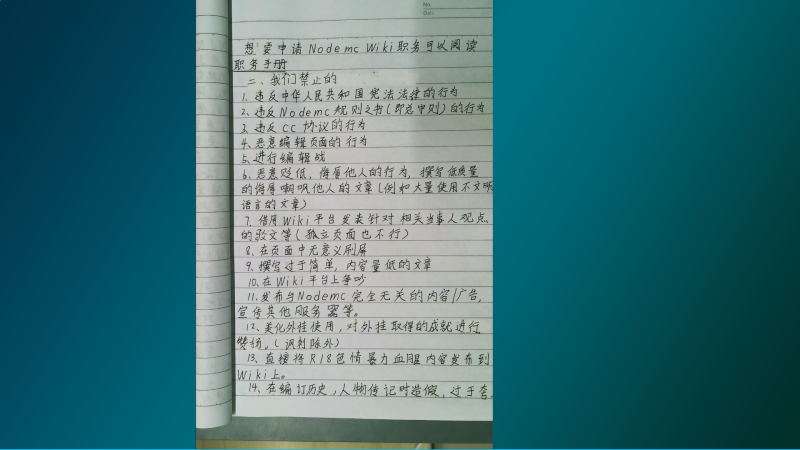 No.
Date.
想要申请Nodemc Wiki职务可以阅读
职务手册
二、我们禁止的
1、违反中华人民共和国宪法法律的行为
2、违反Nodemc规则之书(即总甲则)的行为
3、违反CC协议的行为
4、恶意编辑页面的行为
5、进行编辑战
6、恶意贬低,侮辱他人的行为,撰写低质量
的侮辱嘲讽他人的文章(例如大量使用不文明
语言的文章)
7、借用Wiki平台发表针对相关当事人观点
的驳文等(孤立页面也不行)
8、在页面中无意义刷屏
9、撰写过于简单,内容量低的文章
10、在Wiki平台上争吵
11、发布与Nodemc完全无关的内容/广告,
宣传其他服务器等。
12、美化外挂使用,对外挂取得的成就进行
赞扬。(讽刺除外)
13、直接将R18色情暴力血腥内容发布到
Wiki上。
14、在编订历史,人物传记时造假,过于夸